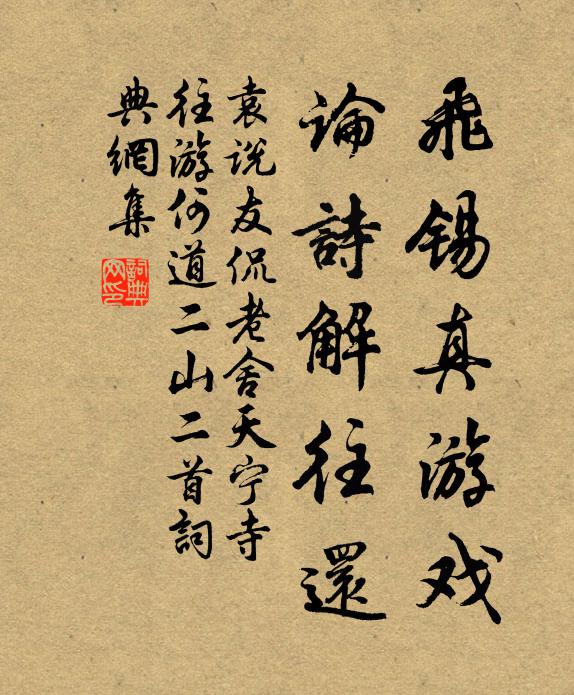 飛锡真游戏
論詩解往還
袁说友侃老舍天宁寺
往游何道二山二首詞
典網集
詞典网印